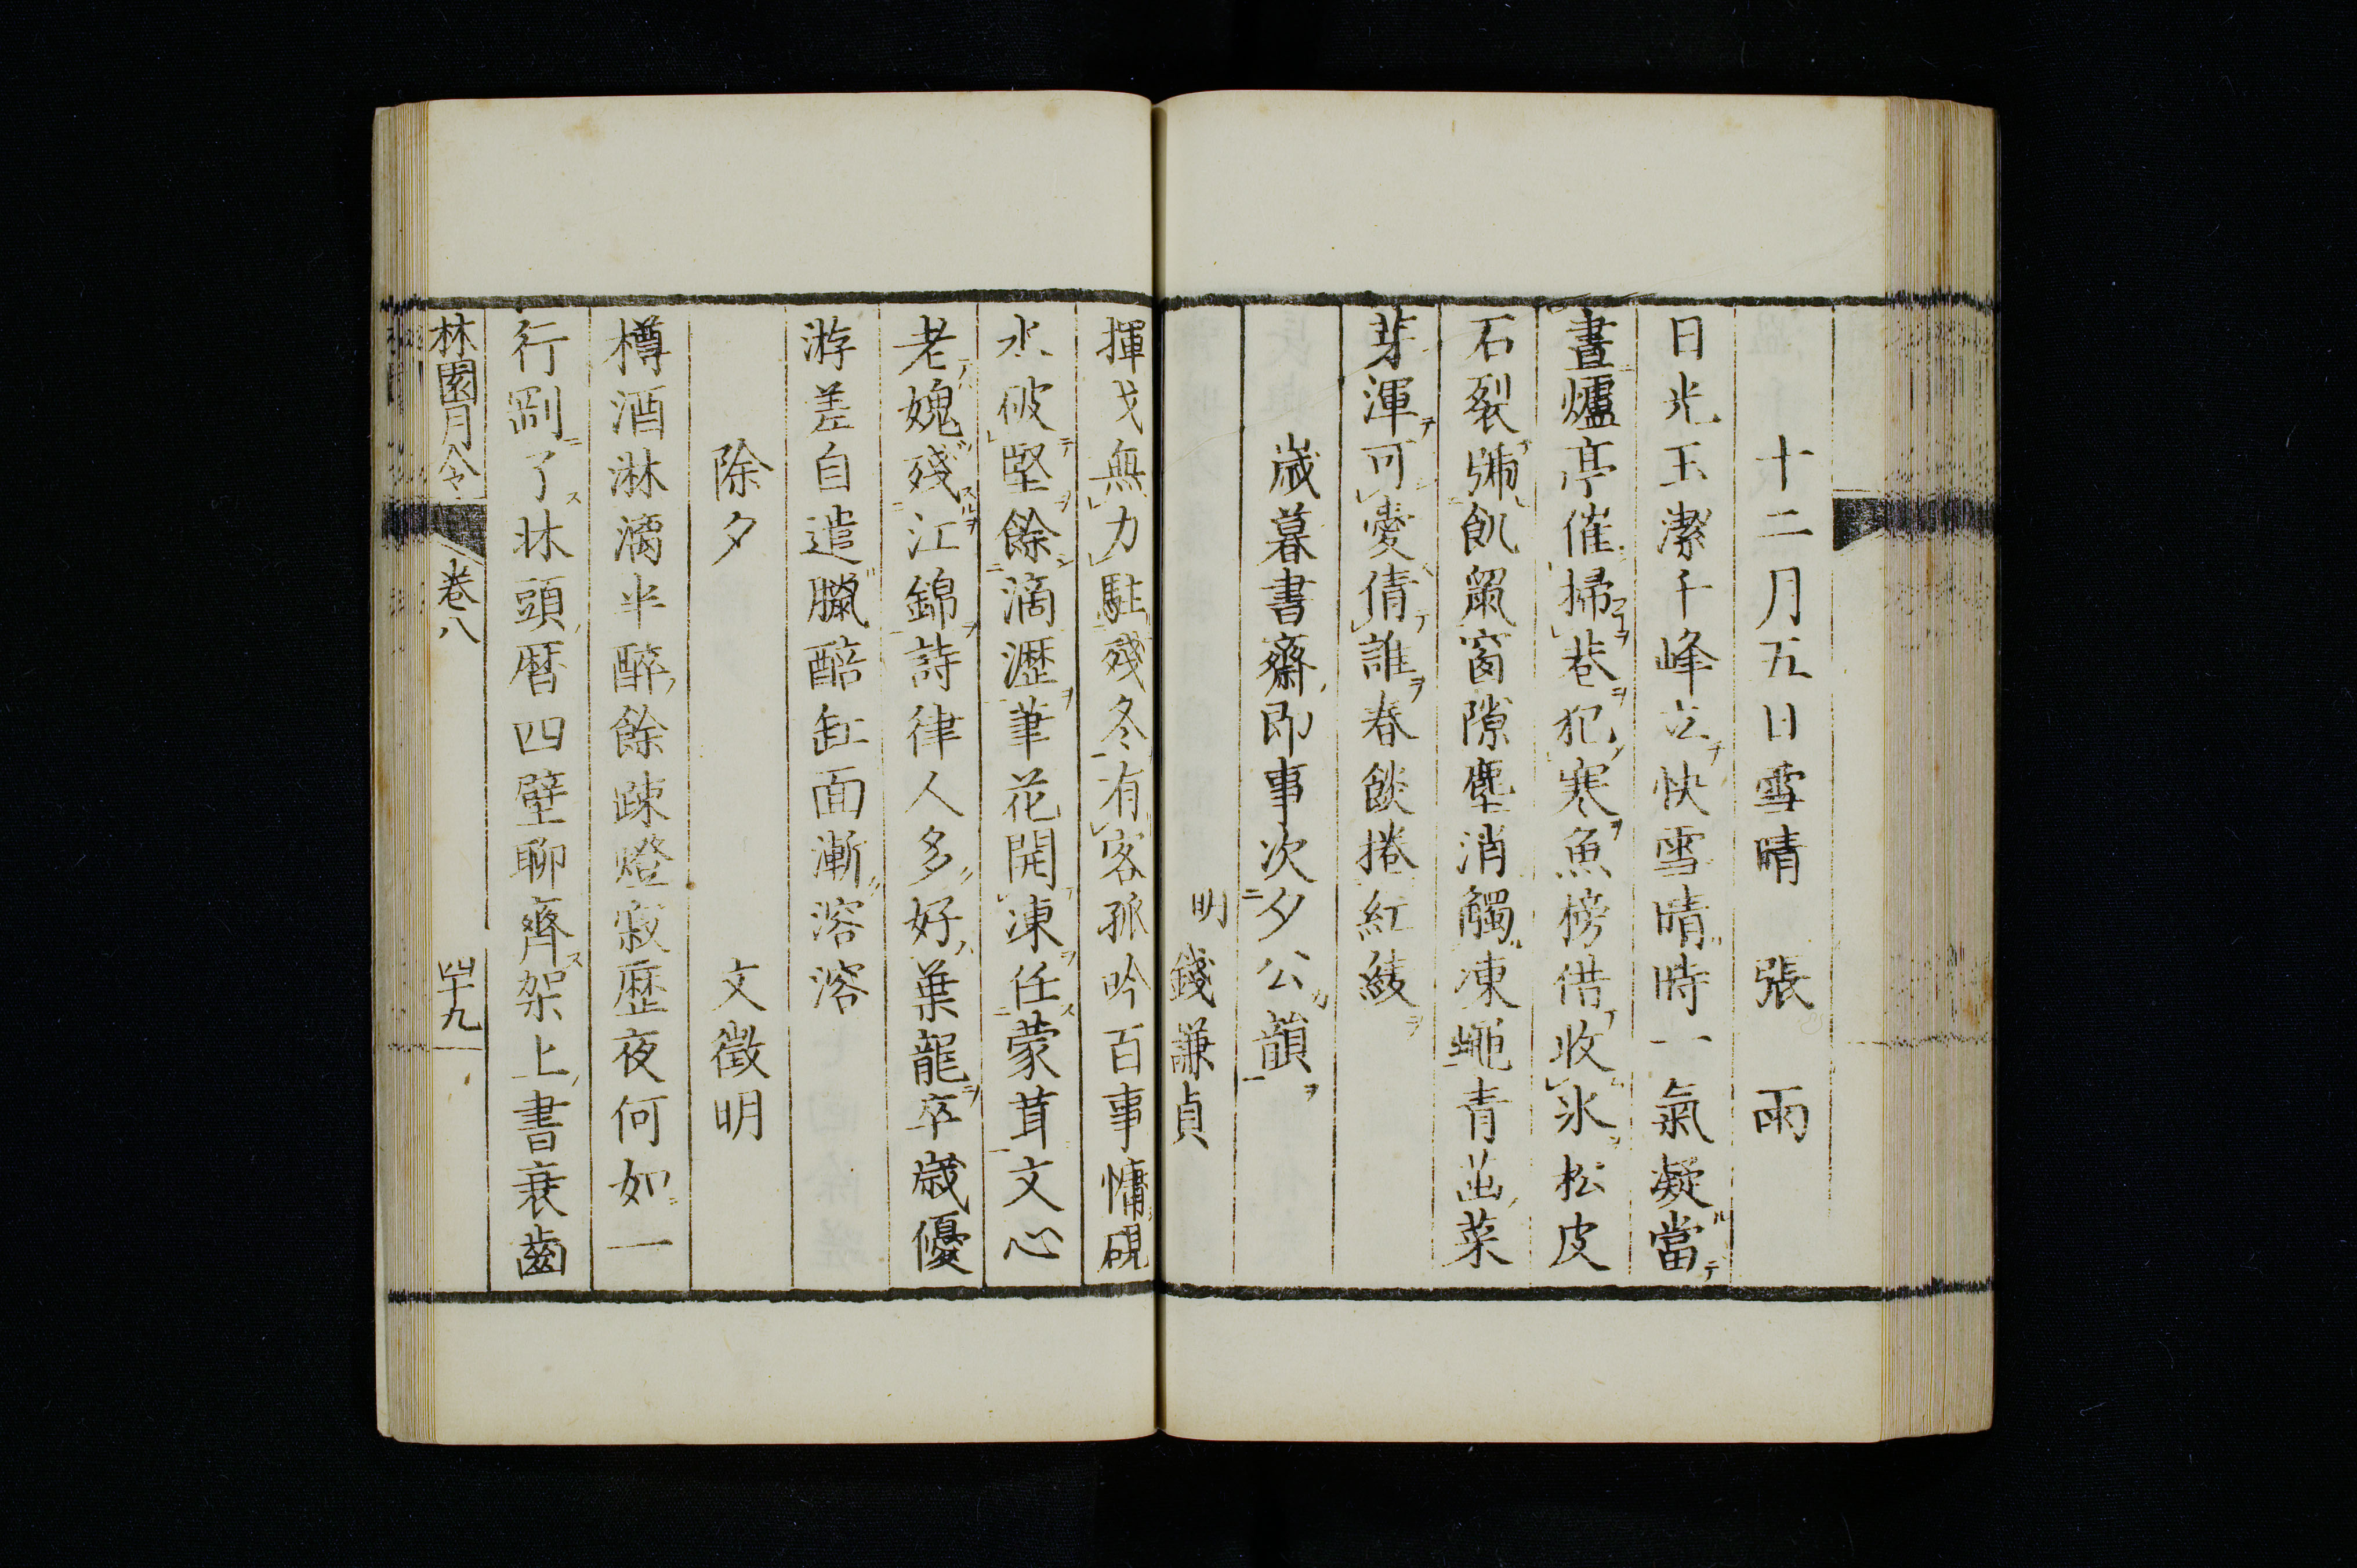 十二月五日雪晴　張　雨
日光玉潔千峰立快雪晴時一氣凝當
晝爐亭催掃巷犯寒魚榜借收氷松皮
石裂彌飢鼠窗隙塵消觸凍蠅青茁菜
芽渾可愛倩誰春餤捲紅綾
歲暮書齋即事次夕公韻
明　錢謙貞
揮戈無力駐殘冬有客孤吟百事慵硯
氷破堅餘滴瀝筆花開凍任蒙茸文心
老媿殘江錦詩律人多好葉龍卒歲優
游差自遣臘醅缸面漸溶溶
除夕　文徵明
樽酒淋漓半醉餘疎燈寂歷夜何如一
行剛了牀頭暦四壁聊齊架上書衰齒
林園月令　卷八　四十九